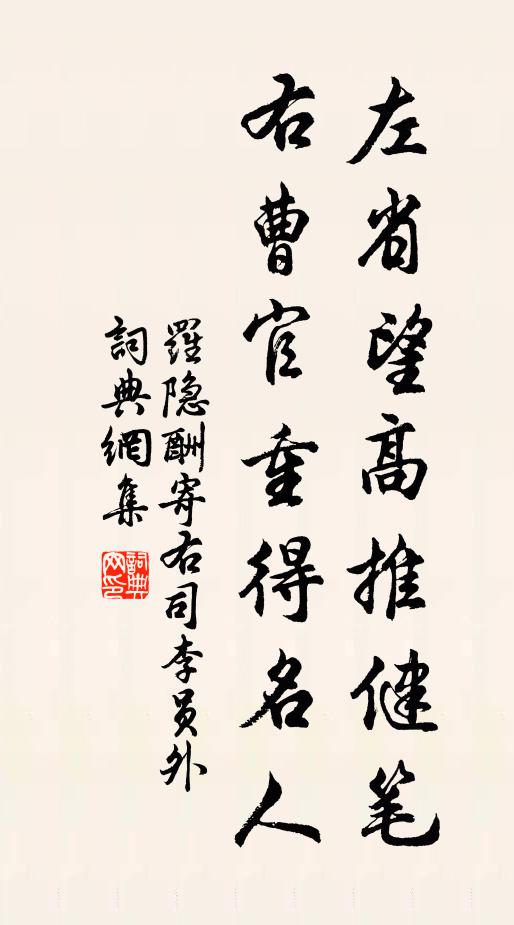 左省望高推健笔
右曹官重得名人
羅隐酬寄右司李员外
詞典網集
詞典网印